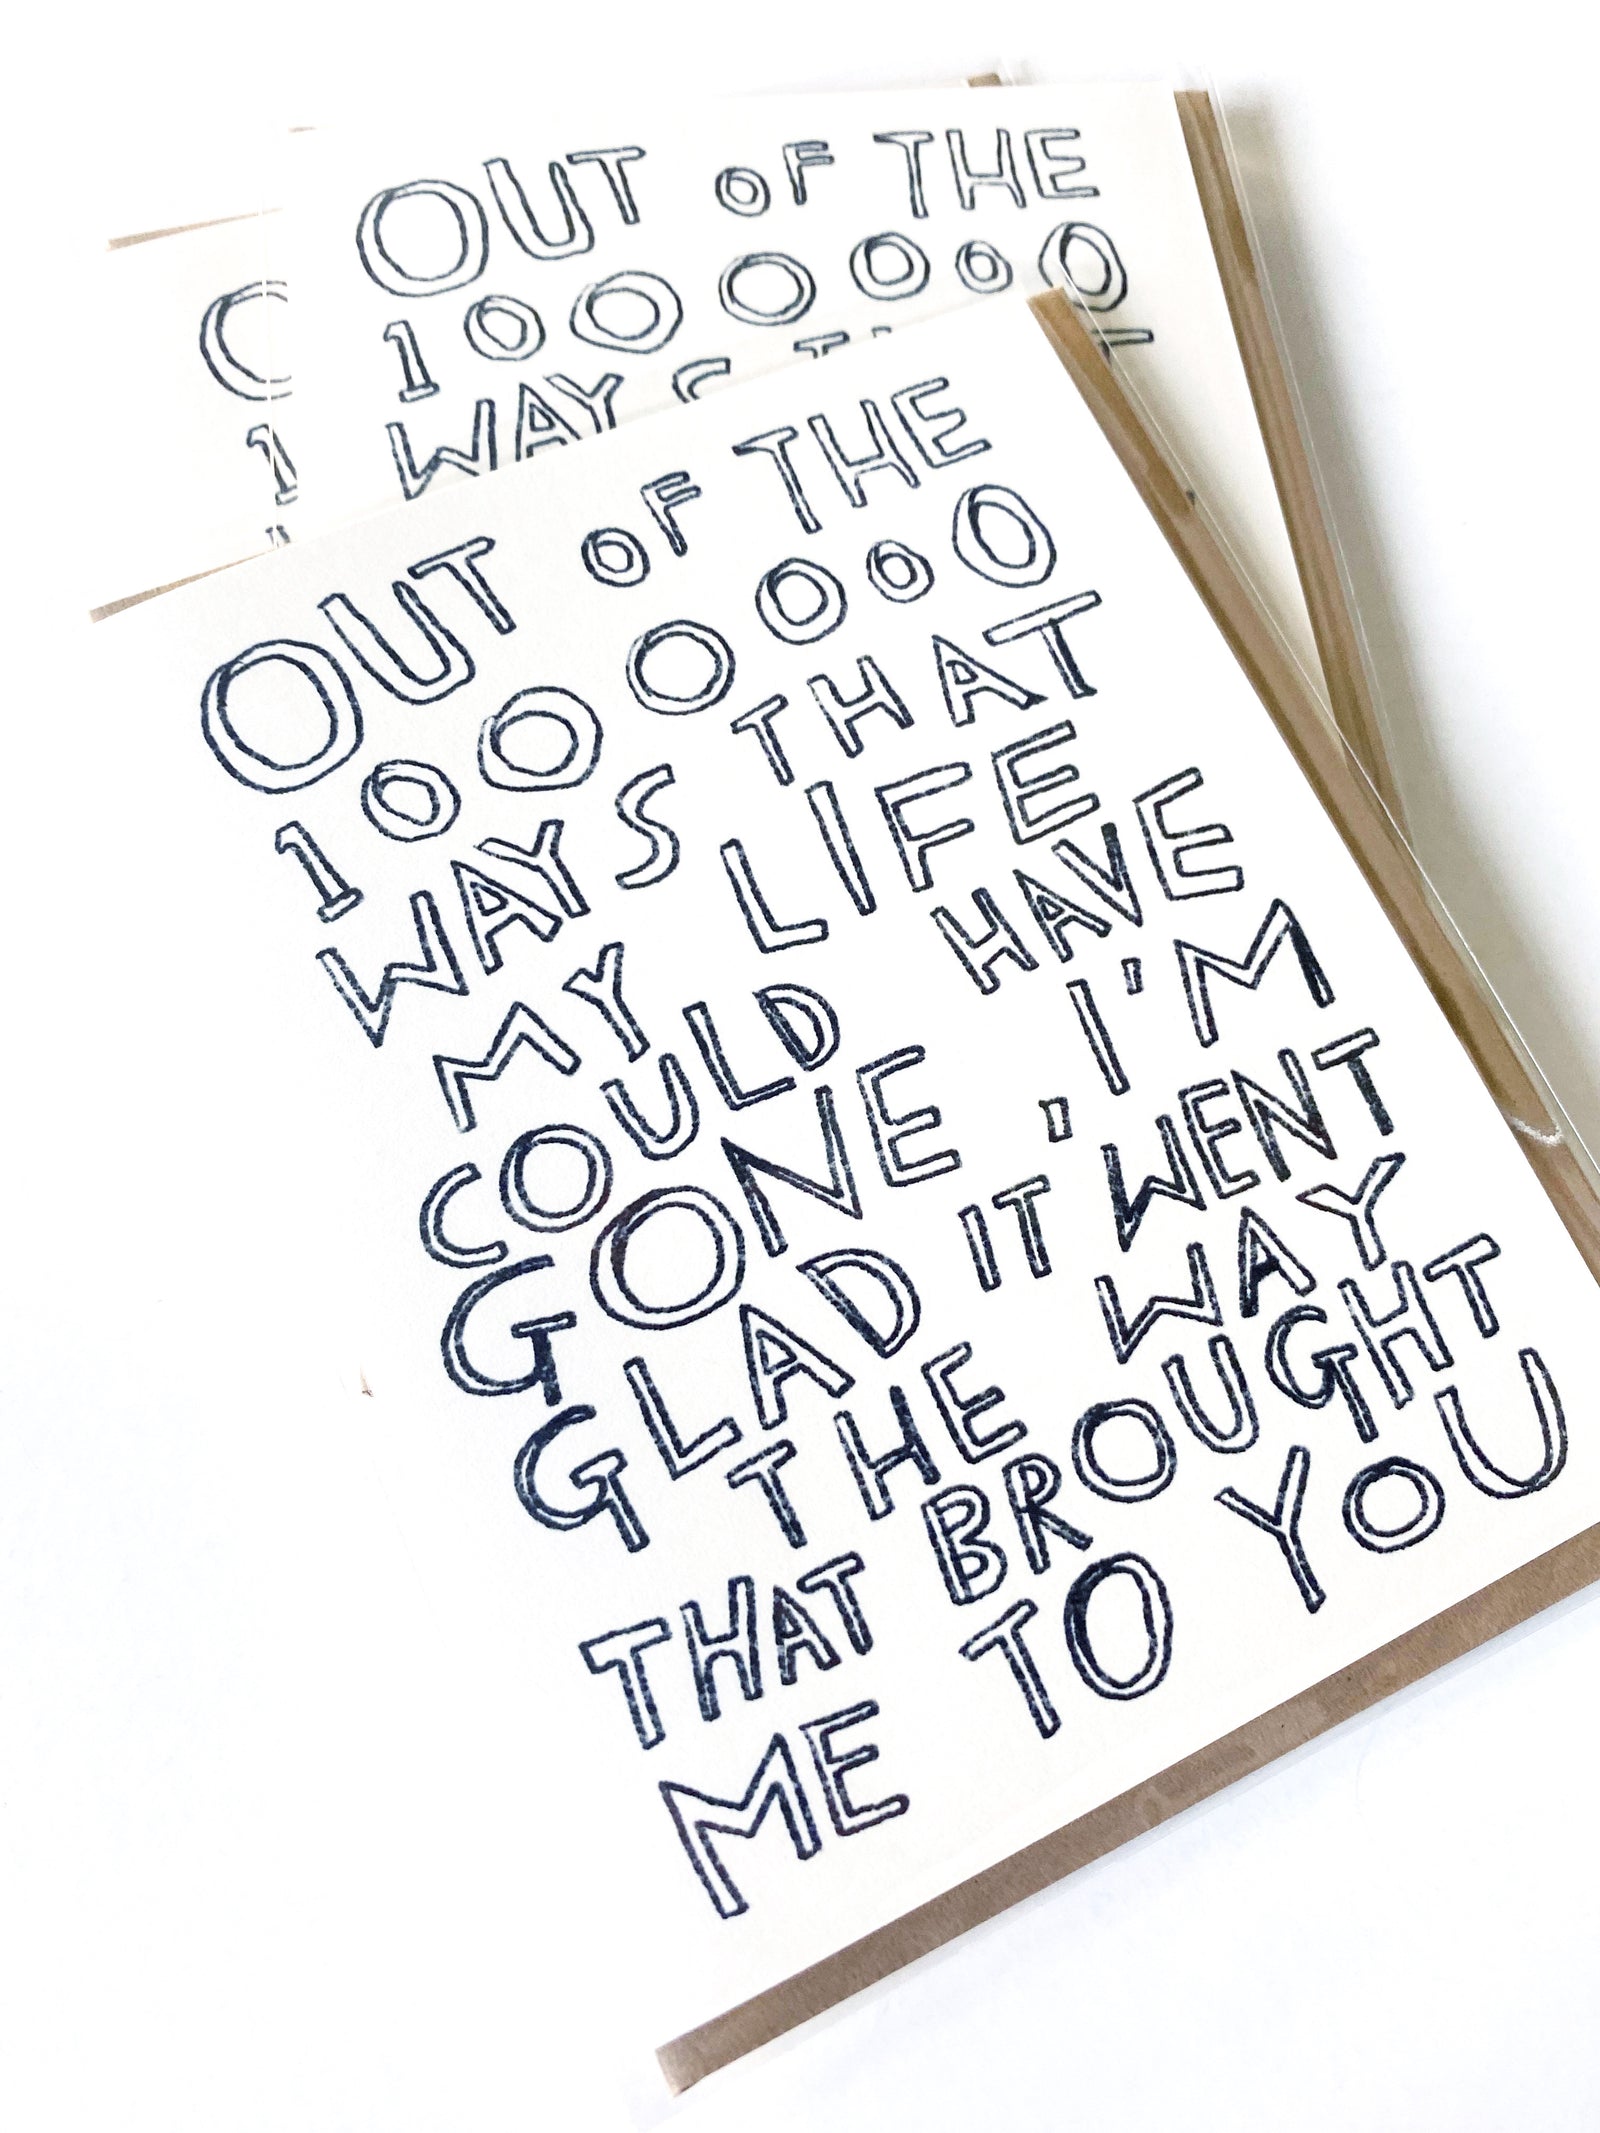 OUT OF THE
1000000
WAYS
OUT OF THE
1000000
WAYS THAT
MY LIFE
COULD HAVE
GONE, I'M
GLAD IT WENT
THE WAY
THAT BROUGHT
ME TO YOU